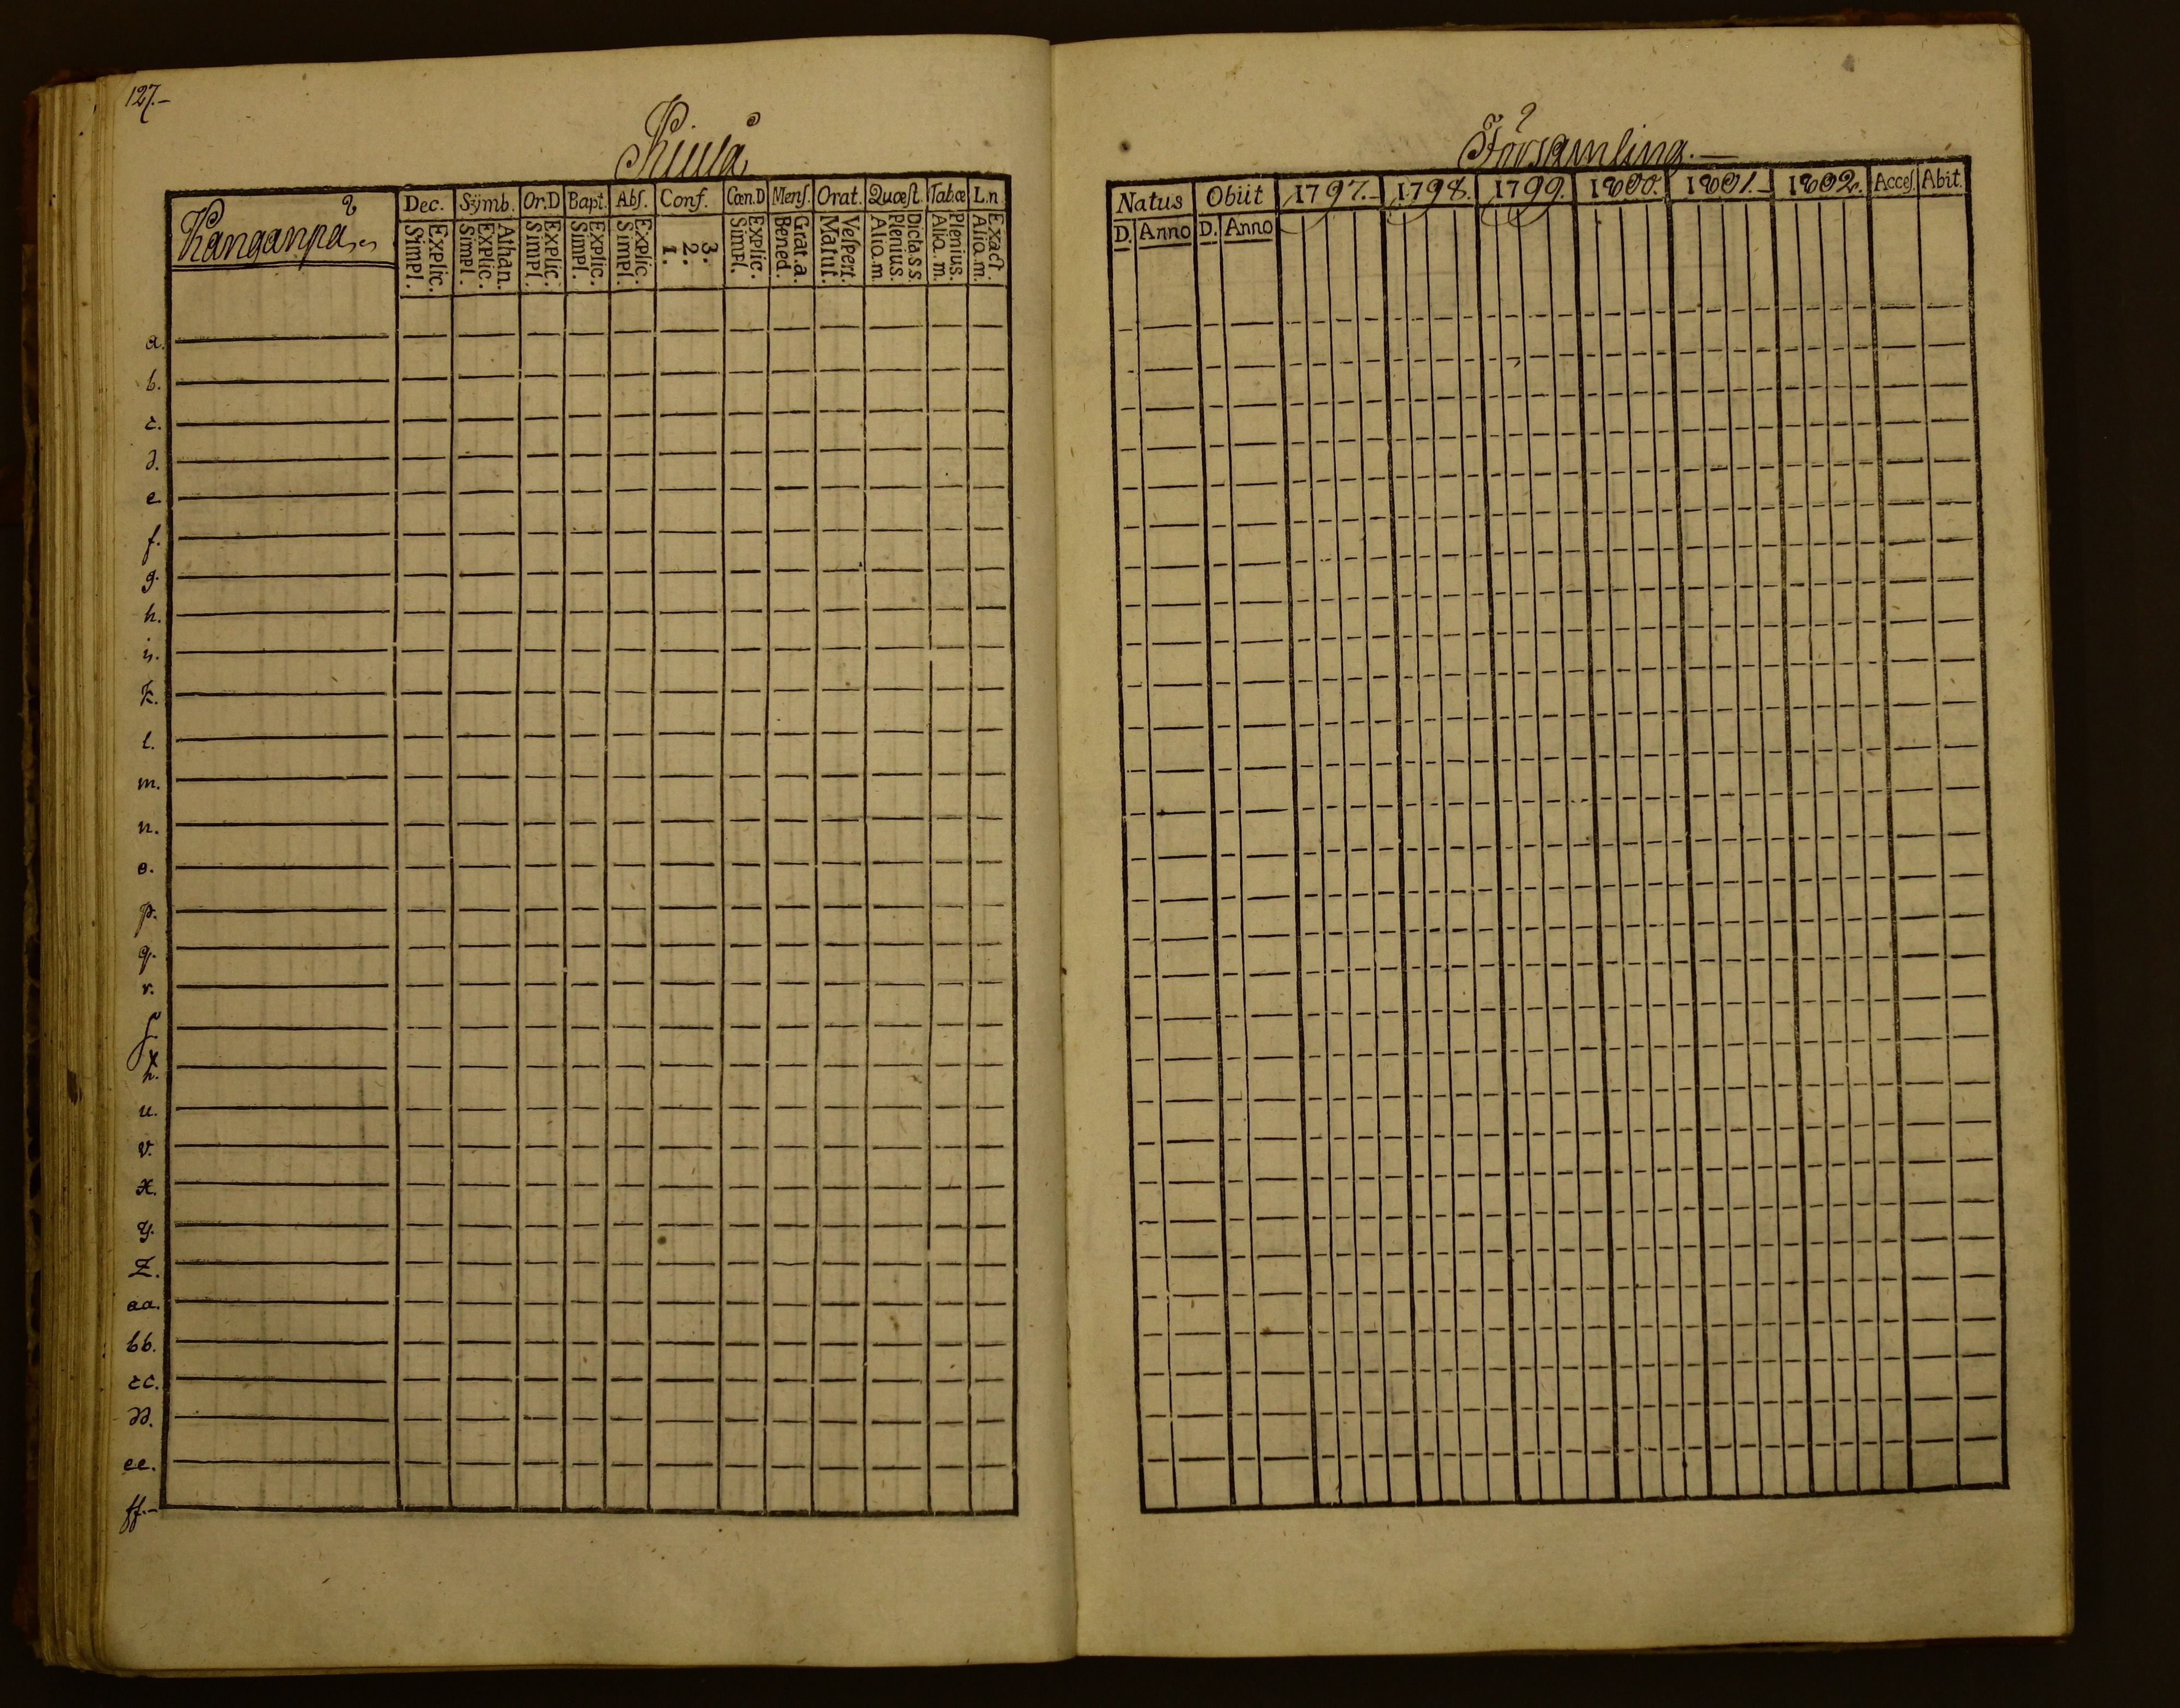 127.-
Kiula
Församling.
Kanganpä
Dec. Sÿmb. Or.D Bapt. Abſ. Conf. Cœn.D Menſ. Orat. Quæſt. Tab.œ L.n
Explic. Simpl.
Athan. Explic. Simpl.
Explic. Simpl.
Explic. Simpl.
Explic. Simpl.
3. 2. 1.
Explic. Simpl.
Grat.a. Bened.
Veſpert. Matut.
Dicta.s.s. Plenius. Alio.m.
Plenius. Alio.m.
Exact. Alio.m.
Natus Obiit 1797.- 1798. 1799. 1800. 1801.- 1802. Acceſ. Abit.
D. Anno D. Anno
a.
b.
c.
d.
e
f.
g.
h.
i.
k.
l.
m.
n.
o.
p.
q.
r.
ſ.
t.
u.
v.
x.
y.
z.
aa.
bb.
cc.
dd.
ee.
ff.-